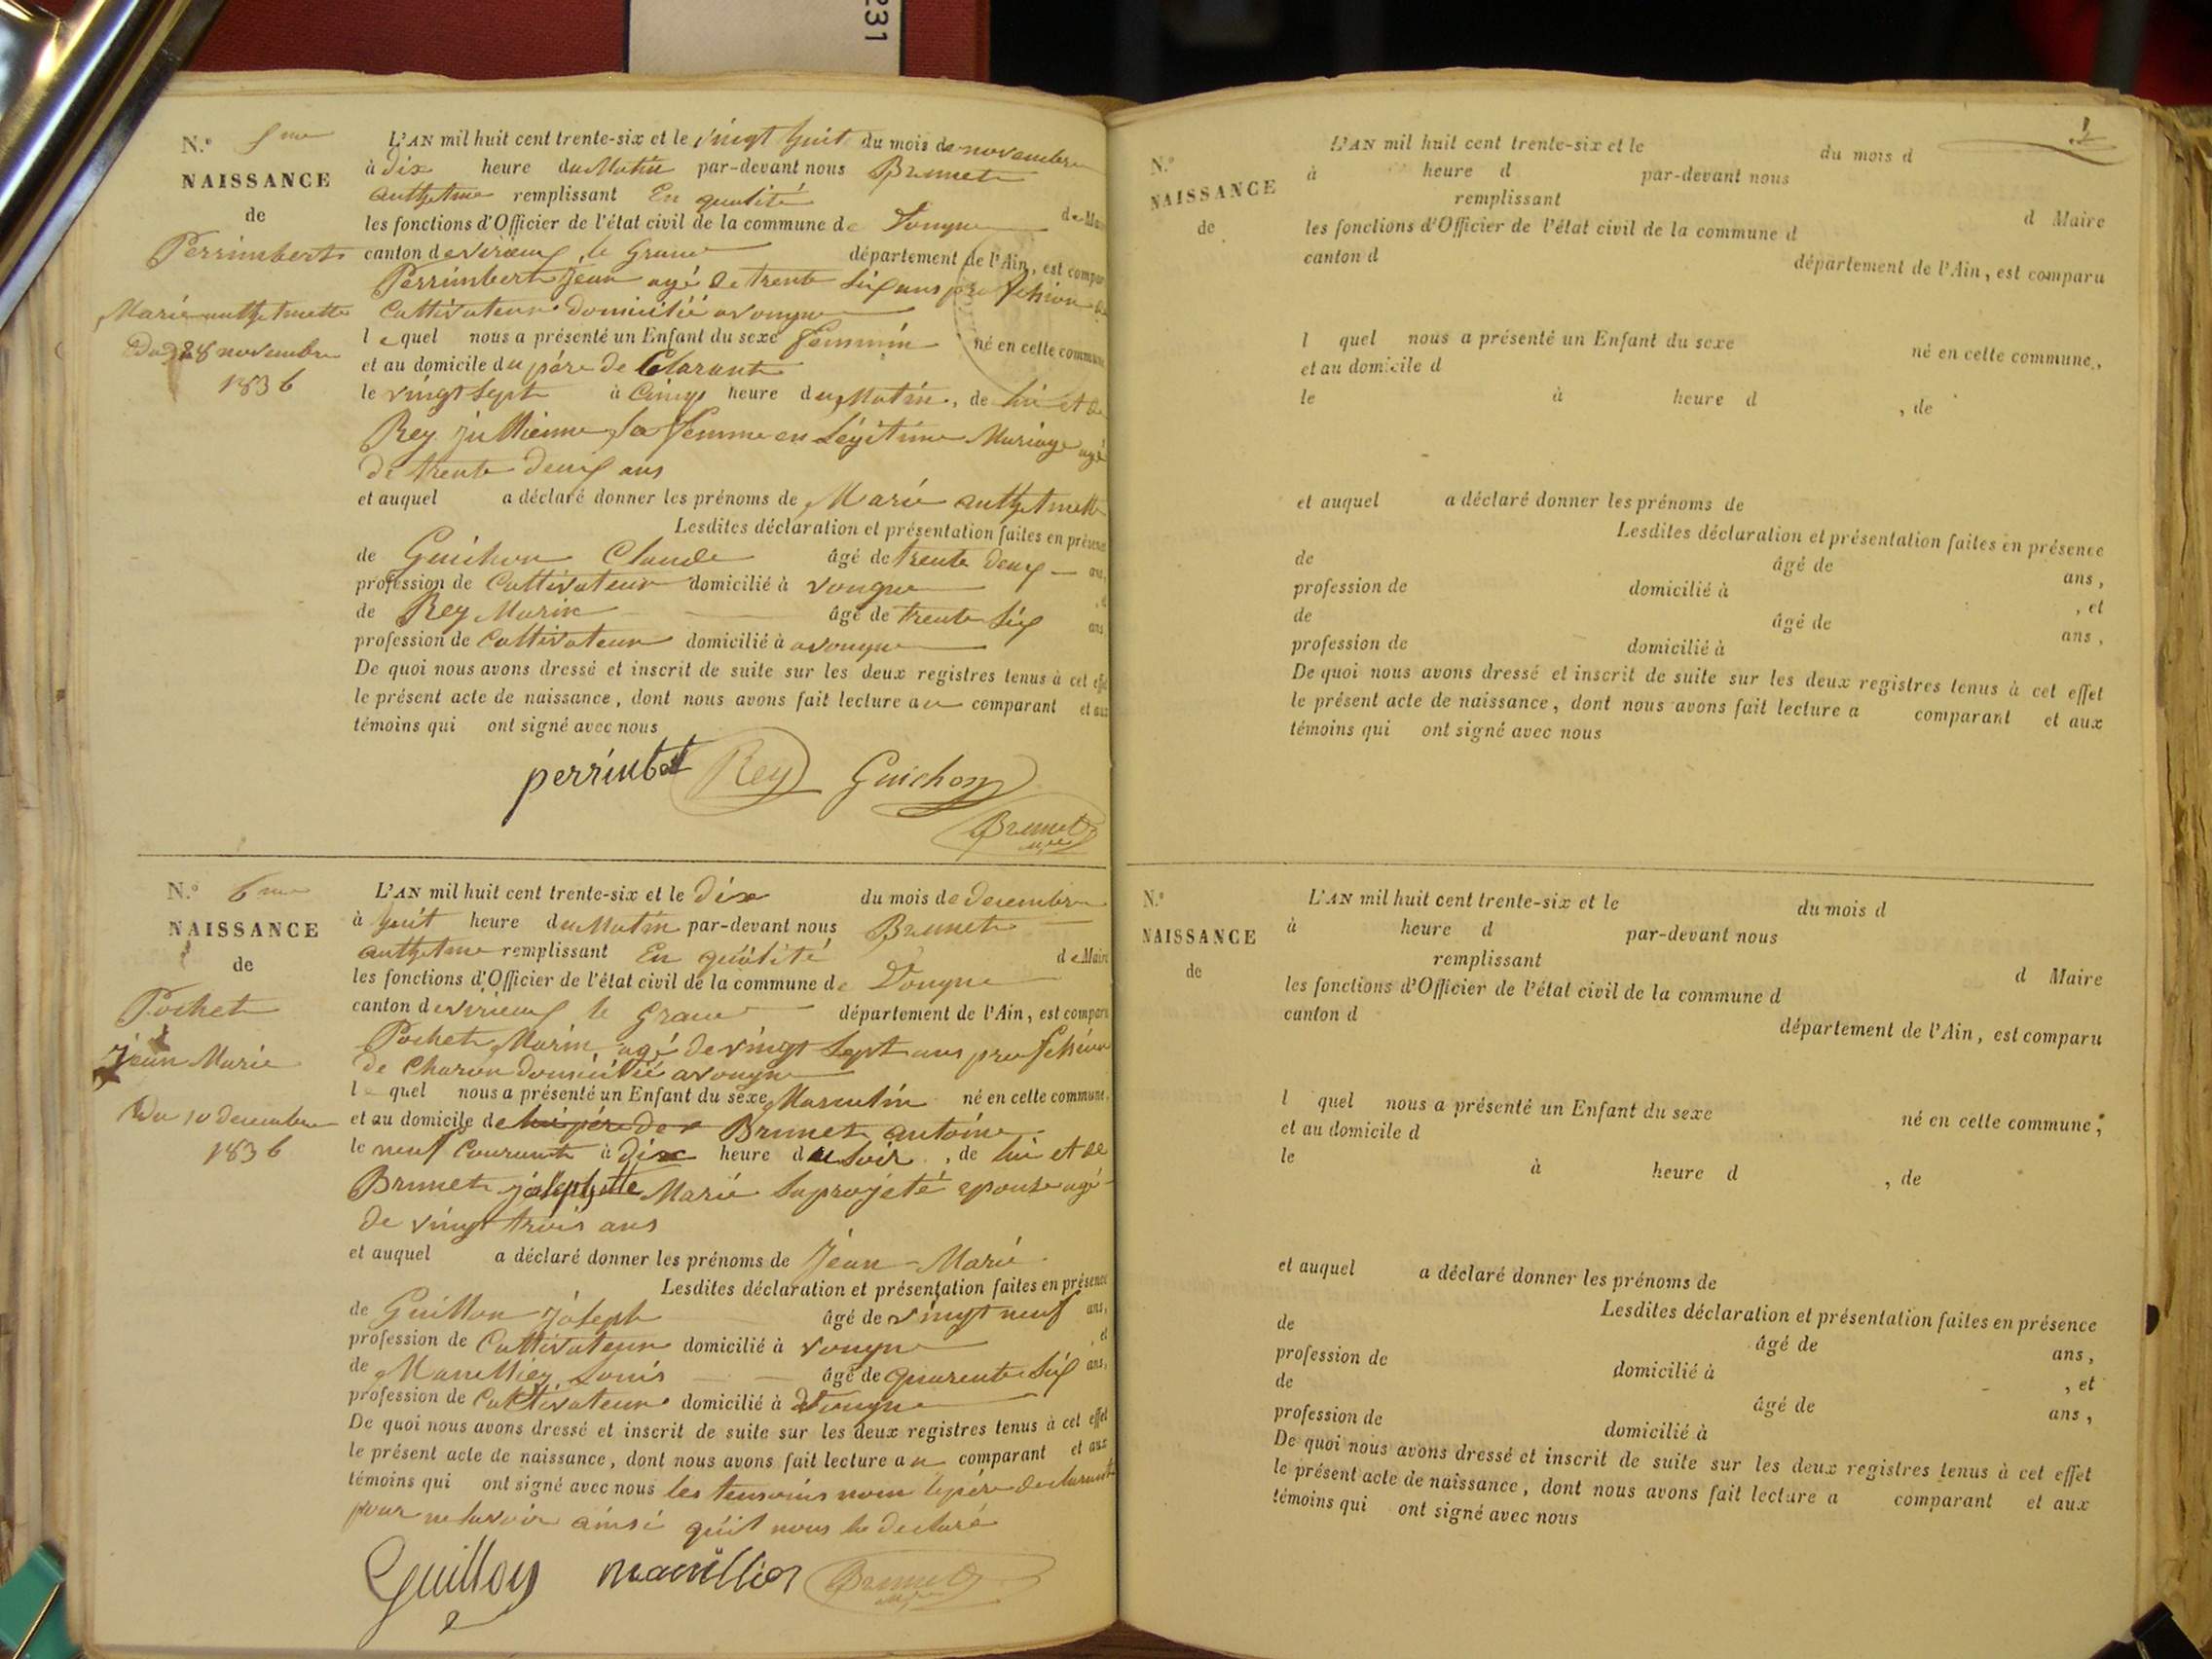 231
N.° 5me
NAISSANCE
de
Perrimbert
Marie anthelmette
Du 28 novembre
1836
L'AN mil huit cent trente-six et le vingt huit du mois de novembre
à dix heure du Matin par-devant nous Brunet
anthelme remplissant En qualité de Maire
les fonctions d'Officier de l'état civil de la commune de Vongne
canton de virieux le Grand département de l'Ain, est comparu
Perrimbert Jean agé de trente six ans profession de
Cultivateur domicilié a vongne
lequel nous a présenté un Enfant du sexe feminin né en cette commune
et au domicile du pére de Clarant
le vingt sept à Cinq heure du Matin, de lui et de
Rey jullienne sa femme en Légitime Mariage agé
de trente deux ans
et auquel a déclaré donner les prénoms de Marie anthelmette
Lesdites déclaration et présentation faites en présence
de Guichon Claude âgé de trente deux ans,
profession de Cultivateur domicilié à vongne, et
de Rey Marin âgé de trente six ans
profession de Cultivateur domicilié à a vongne
De quoi nous avons dressé et inscrit de suite sur les deux registres tenus à cet effet
le présent acte de naissance, dont nous avons fait lecture au comparant et aux
témoins qui ont signé avec nous
perrinbet Rey Guichon
Brunet
N.° 6me
NAISSANCE
de
Pochet
Jean Marie
Du 10 decembre
1836
L'AN mil huit cent trente-six et le Dix du mois de decembre
à huit heure du Matin par-devant nous Brunet
anthelme remplissant En quálité de Maire
les fonctions d'Officier de l'état civil de la commune de Vongne
canton de virieux le Grand département de l'Ain, est comparu
Pochet Marin agé de vingt sept ans profession
de Charon domicilié a vongne
lequel nous a présenté un Enfant du sexe Masculin né en cette commune,
et au domicile de Brunet antoine
le neuf Courant à dix heure du soir, de lui et de
Brunet josephtte Marie sa projeté epouse agé
de vingt trois ans
et auquel a déclaré donner les prénoms de Jean-Marie
Lesdites déclaration et présentation faites en présence
de Guillon joseph âgé de vingt neuf ans,
profession de Cultivateur domicilié à vongne, et
de Manillier Louis âgé de quarente six ans,
profession de Cultivateur domicilié à Vongne
De quoi nous avons dressé et inscrit de suite sur les deux registres tenus à cet effet
le présent acte de naissance, dont nous avons fait lecture au comparant et aux
témoins qui ont signé avec nous les temoins non le pére declarant
pour ne savoir ainsi qu'il nous la declaré
Guillon manillier Brunet
N.°
NAISSANCE
de
L'AN mil huit cent trente-six et le du mois d
à heure d par-devant nous
remplissant d Maire
les fonctions d'Officier de l'état civil de la commune d
canton d département de l'Ain, est comparu
l quel nous a présenté un Enfant du sexe né en cette commune,
et au domicile d
le à heure d , de
et auquel a déclaré donner les prénoms de
Lesdites déclaration et présentation faites en présence
de âgé de ans,
profession de domicilié à , et
de âgé de ans,
profession de domicilié à
De quoi nous avons dressé et inscrit de suite sur les deux registres tenus à cet effet
le présent acte de naissance, dont nous avons fait lecture a comparant et aux
témoins qui ont signé avec nous
N.°
NAISSANCE
de
L'AN mil huit cent trente-six et le du mois d
à heure d par-devant nous
remplissant d Maire
les fonctions d'Officier de l'état civil de la commune d
canton d département de l'Ain, est comparu
l quel nous a présenté un Enfant du sexe né en cette commune,
et au domicile d
le à heure d , de
et auquel a déclaré donner les prénoms de
Lesdites déclaration et présentation faites en présence
de âgé de ans,
profession de domicilié à , et
de âgé de ans,
profession de domicilié à
De quoi nous avons dressé et inscrit de suite sur les deux registres tenus à cet effet
le présent acte de naissance, dont nous avons fait lecture a comparant et aux
témoins qui ont signé avec nous